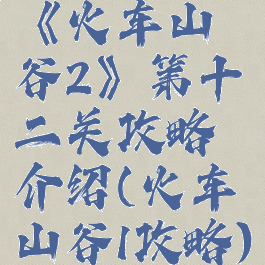 《火车山
谷2》第十
二关攻略
介绍(火车
山谷1攻略)